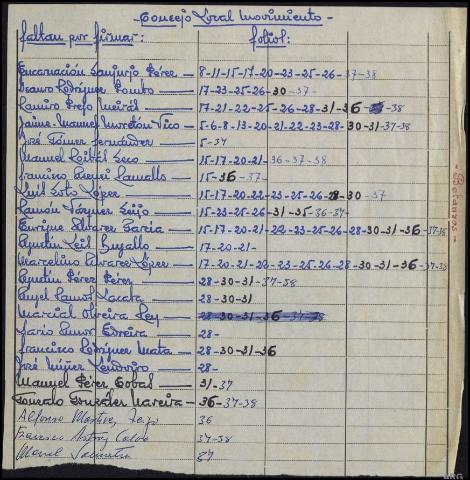 - Concejo Local Movimiento -
faltan por firmar: folios:
Encarnación Sanjurjo Pérez — 8-11-15-17-20-23-25-26-37-38
Rodríguez Pombo — 17-23-25-26-30-37-
Ramiro Prego Meirás — 17-21-22-25-26-28-31-36-38
Jaime Manuel Muretón Vico — 5-6-8-13-20-21-22-23-28-30-31-37-38
José Fernández — 5-37
Manuel Seco — 15-17-20-21-36-37-38
Francisco Ramallo — 15-36-37-
Luis Soto López — 15-17-20-22-23-25-26-28-30-37
Ramón Vázquez Seijo — 15-23-25-26-31-35-36-37-
Enrique Alvarez García — 15-17-20-21-22-23-25-26-28-30-31-36-37-38
Agustín Bugallo — 17-20-21-
Marcelino Alvarez López — 17-20-21-22-23-25-26-28-30-31-36-37-38
Agustín Pérez Pérez — 28-30-31-37-38
Angel Ramos — 28-30-31
Marcial Oliveira Rey — 28-30-31-36-37-38
Edreira — 28-
Francisco Rodríguez Mata — 28-30-31-36
José Núñez — 28-
Manuel Pérez Cobas — 31-37
Gonzalo González Nareira — 36-37-38
Alfonso 36
Francisco 37-38
Manuel 37
- Betanzos -